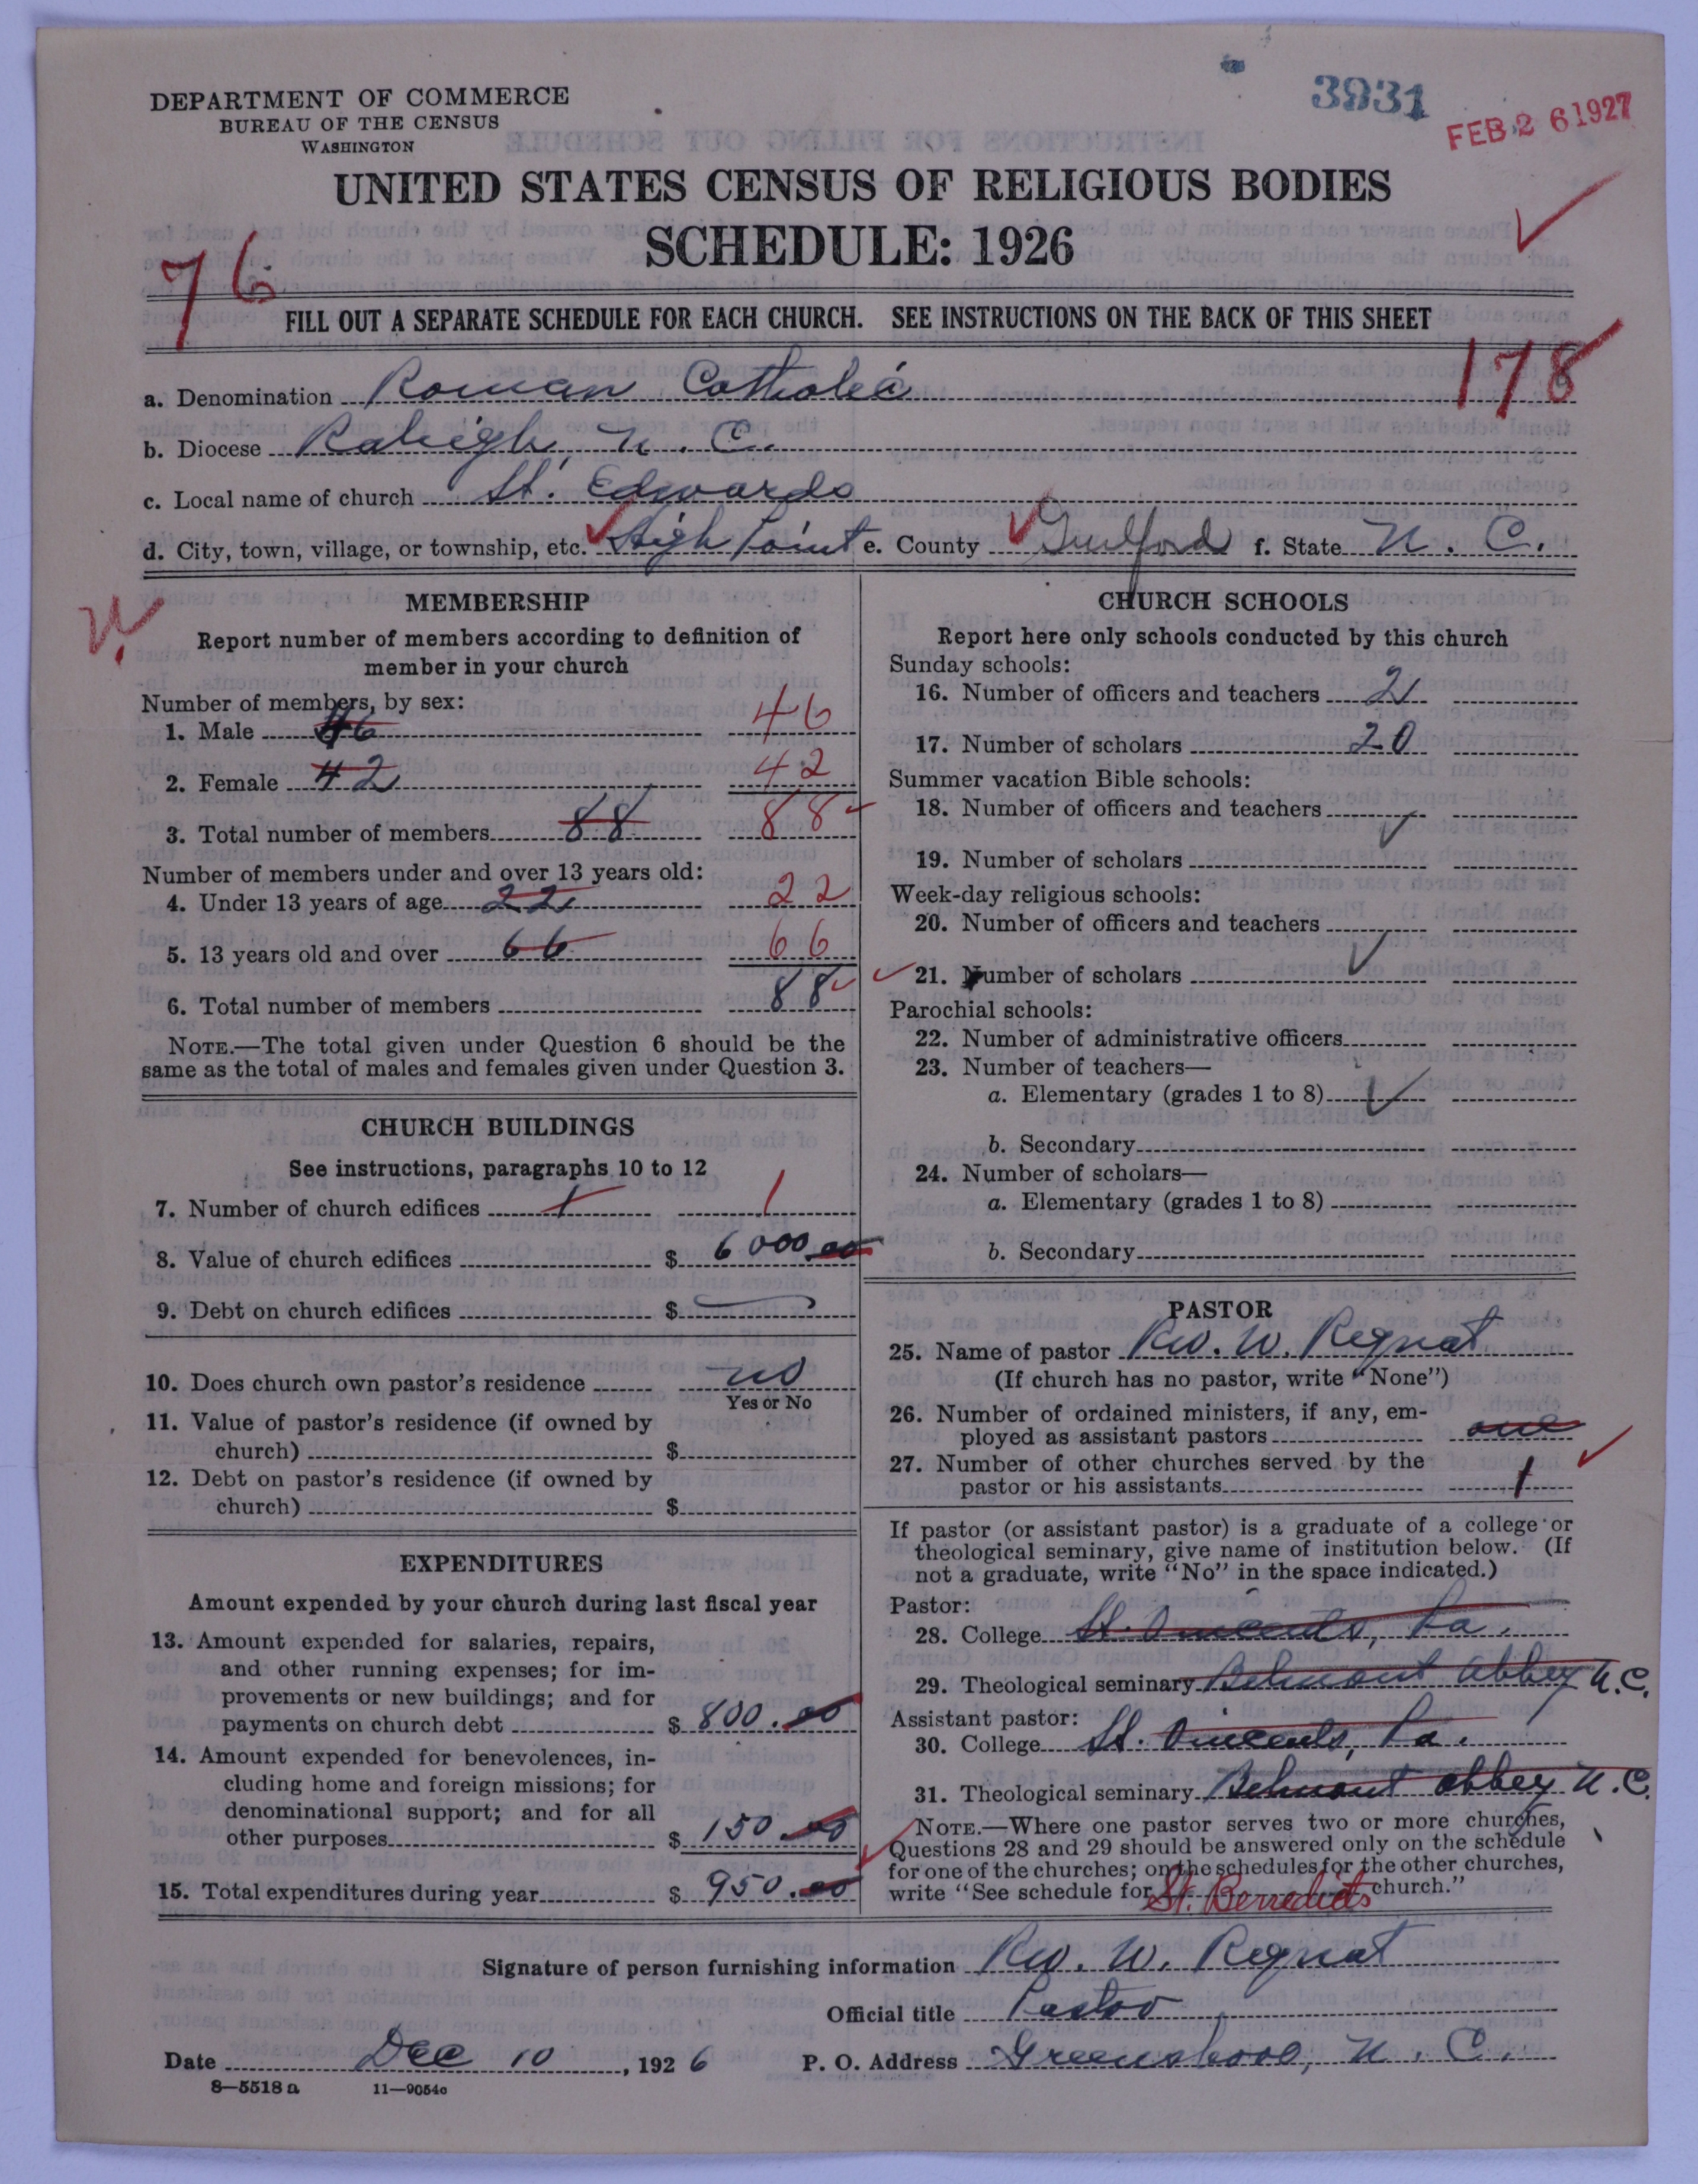 3931
FEB 26 1927
DEPARTMENT OF COMMERCE
BUREAU OF THE CENSUS
WASHINGTON
UNITED STATES CENSUS OF RELIGIOUS BODIES
SCHEDULE: 1926
76
FILL OUT A SEPARATE SCHEDULE FOR EACH CHURCH. SEE INSTRUCTIONS ON THE BACK OF THIS SHEET
178
a. Denomination Roman Catholic
b. Diocese Raleigh, N. C.
c. Local name of church St. Edwards
d. City, town, village, or township, etc. High Point e. County Guilford f. State N. C.
MEMBERSHIP
Report number of members according to definition of
member in your church
Number of members, by sex:
1. Male 46 46
2. Female 42 42
3. Total number of members 88 88
Number of members under and over 13 years old:
4. Under 13 years of age 22 22
5. 13 years old and over 66 66
6. Total number of members 88
NOTE.—The total given under Question 6 should be the
same as the total of males and females given under Question 3.
CHURCH BUILDINGS
See instructions, paragraphs 10 to 12
7. Number of church edifices 1 1
8. Value of church edifices $ 6000.00
9. Debt on church edifices $ —
10. Does church own pastor's residence no
Yes or No
11. Value of pastor's residence (if owned by
church) $
12. Debt on pastor's residence (if owned by
church) $
EXPENDITURES
Amount expended by your church during last fiscal year
13. Amount expended for salaries, repairs,
and other running expenses; for im-
provements or new buildings; and for
payments on church debt $ 800.00
14. Amount expended for benevolences, in-
cluding home and foreign missions; for
denominational support; and for all
other purposes $ 150.00
15. Total expenditures during year $ 950.00
CHURCH SCHOOLS
Report here only schools conducted by this church
Sunday schools:
16. Number of officers and teachers 2
17. Number of scholars 20
Summer vacation Bible schools:
18. Number of officers and teachers
19. Number of scholars
Week-day religious schools:
20. Number of officers and teachers
21. Number of scholars
Parochial schools:
22. Number of administrative officers
23. Number of teachers—
a. Elementary (grades 1 to 8)
b. Secondary
24. Number of scholars—
a. Elementary (grades 1 to 8)
b. Secondary
PASTOR
25. Name of pastor Rev. W. Regnat
(If church has no pastor, write "None")
26. Number of ordained ministers, if any, em-
ployed as assistant pastors one
27. Number of other churches served by the
pastor or his assistants 1
If pastor (or assistant pastor) is a graduate of a college or
theological seminary, give name of institution below. (If
not a graduate, write "No" in the space indicated.)
Pastor:
28. College St. Vincents, Pa.
29. Theological seminary Belmont Abbey N.C.
Assistant pastor:
30. College St. Vincents, Pa.
31. Theological seminary Belmont Abbey N.C.
NOTE.—Where one pastor serves two or more churches,
Questions 28 and 29 should be answered only on the schedule
for one of the churches; on the schedules for the other churches,
write "See schedule for St. Benedicts church."
Signature of person furnishing information Rev. W. Regnat
Official title Pastor
Date Dec 10, 1926 P. O. Address Greensboro, N. C.
8—5518 a 11—9054c